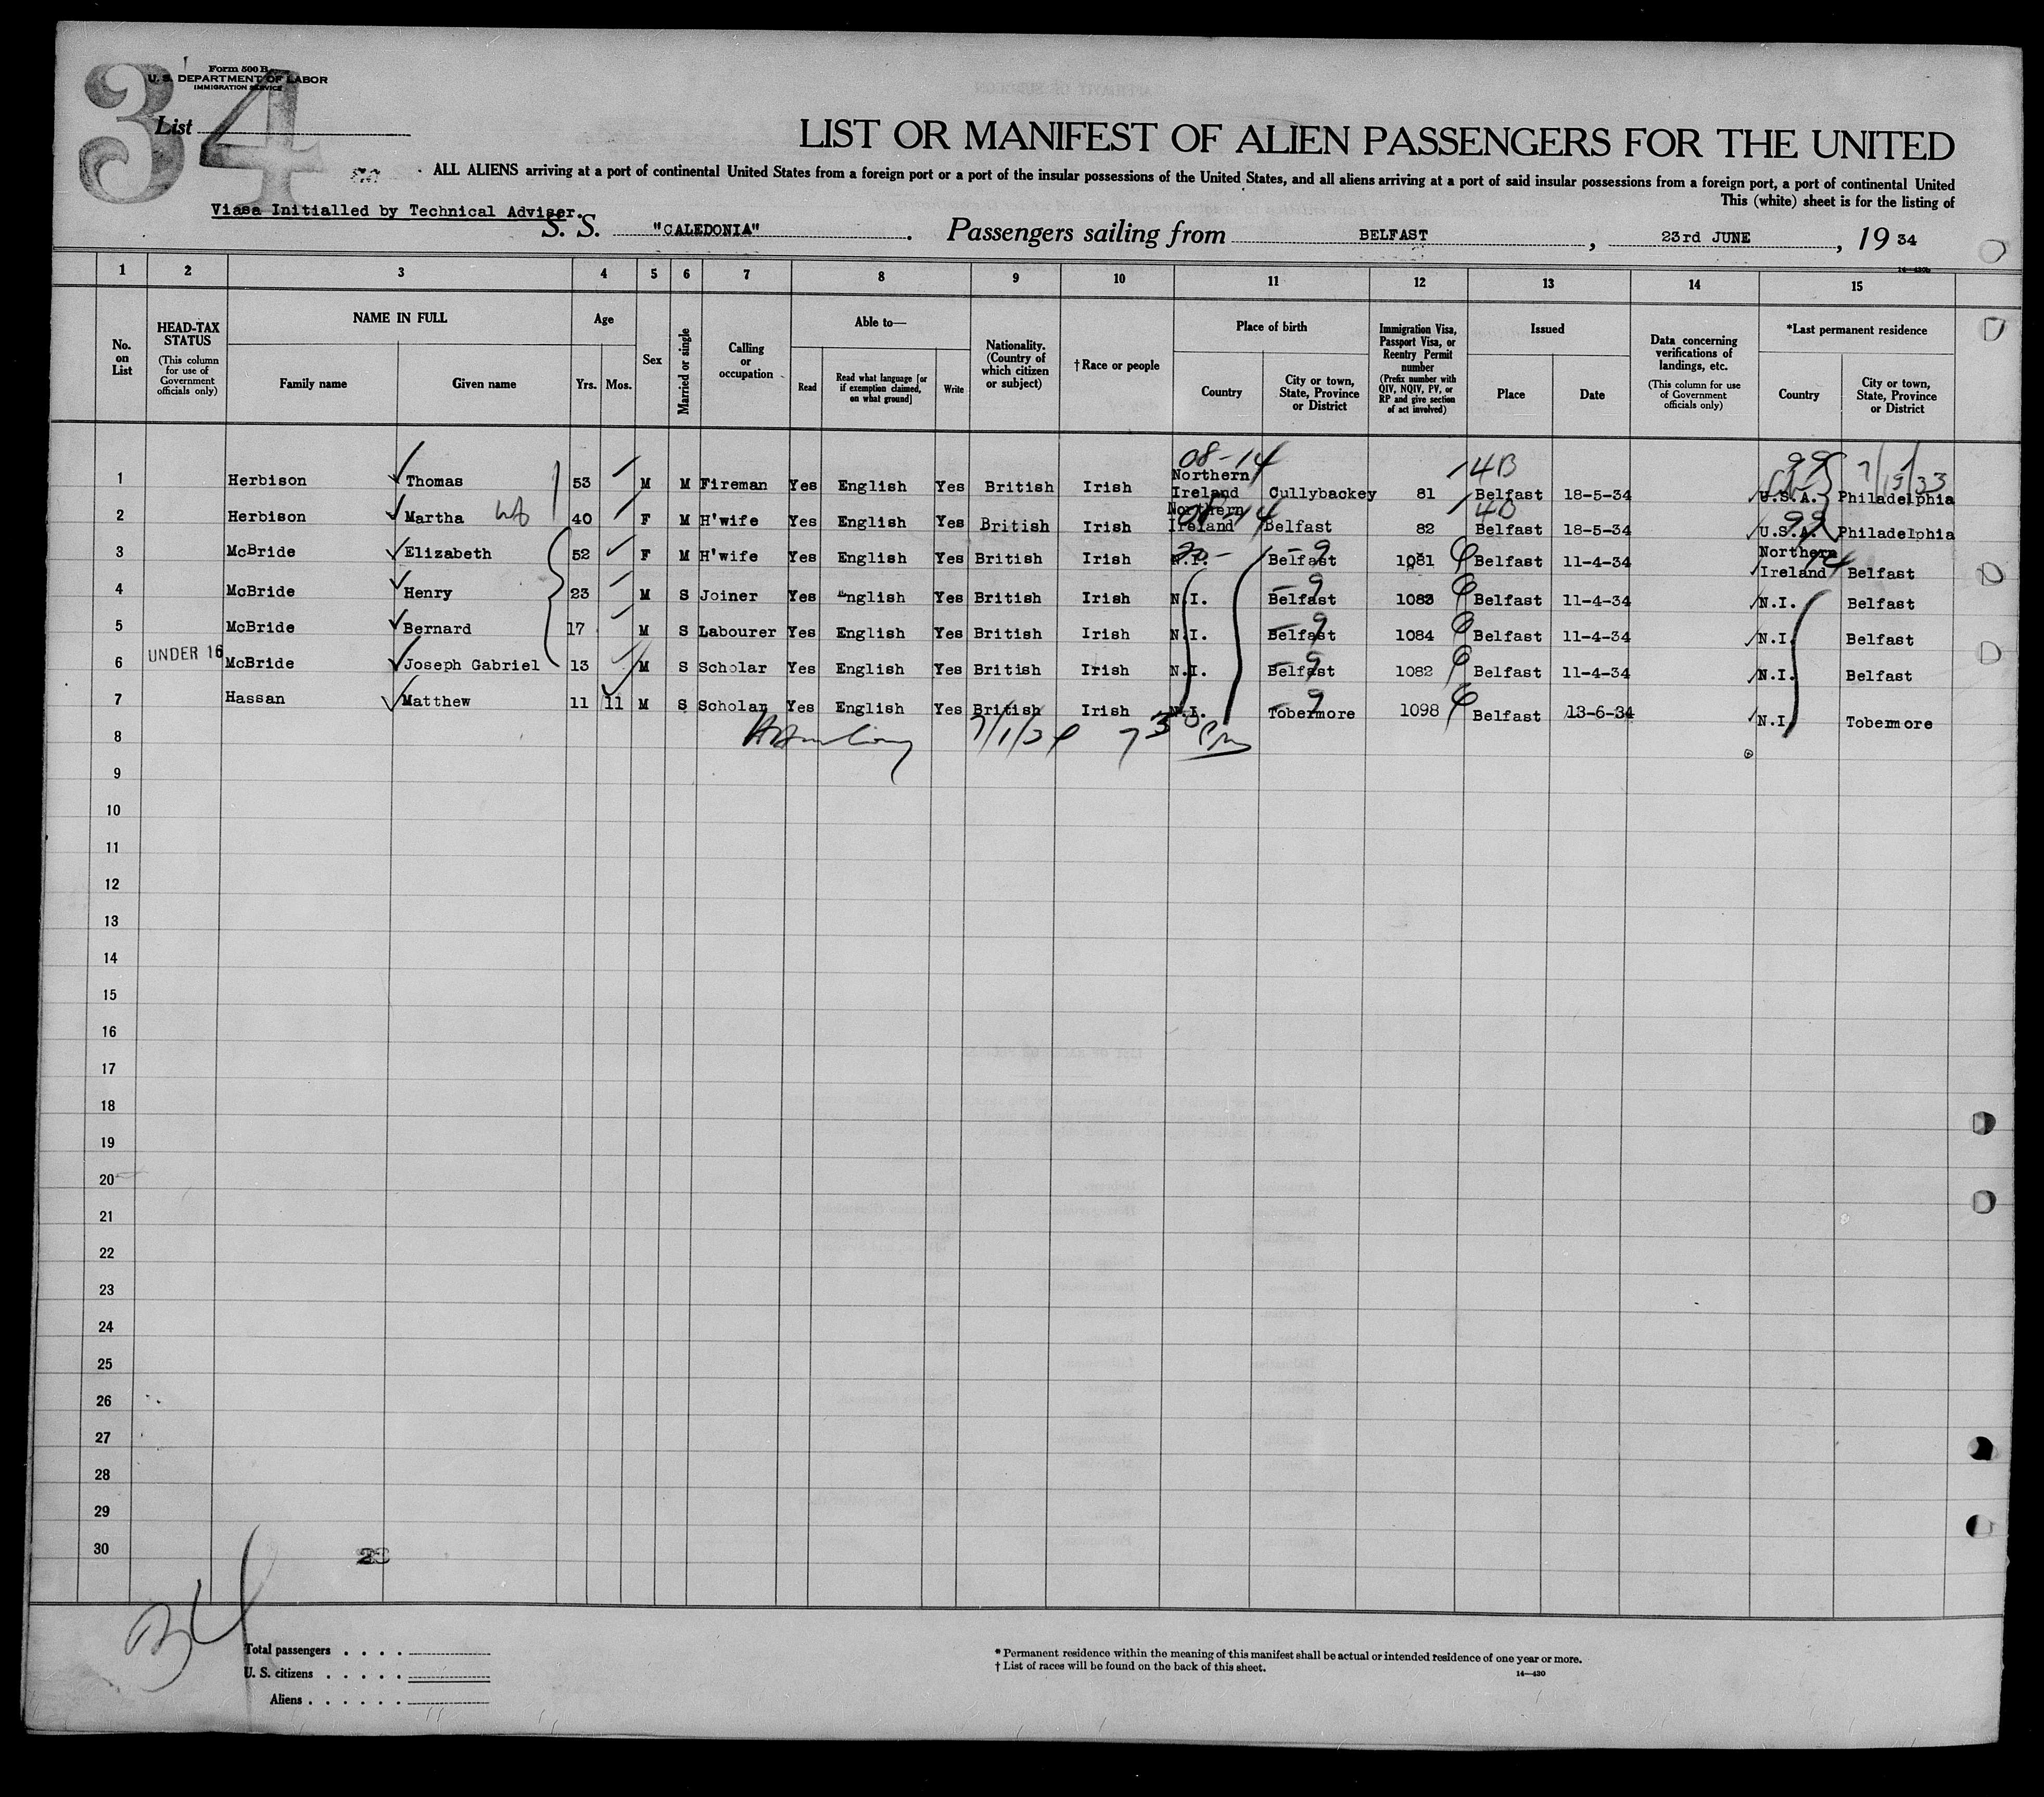 34
Form 500 B
U. S. DEPARTMENT OF LABOR
IMMIGRATION SERVICE
List
LIST OR MANIFEST OF ALIEN PASSENGERS FOR THE UNITED
ALL ALIENS arriving at a port of continental United States from a foreign port or a port of the insular possessions of the United States, and all aliens arriving at a port of said insular possessions from a foreign port, a port of continental United
This (white) sheet is for the listing of
Viasa Initialled by Technical Adviser.
S. S. "CALEDONIA". Passengers sailing from BELFAST, 23rd JUNE, 19 34
14—430b
1 2 3 4 5 6 7 8 9 10 11 12 13 14 15
No. on List
HEAD-TAX STATUS (This column for use of Government officials only)
NAME IN FULL Family name Given name
Age Yrs. Mos.
Sex
Married or single
Calling or occupation
Able to— Read Read what language [or if exemption claimed, on what ground] Write
Nationality. (Country of which citizen or subject)
† Race or people
Place of birth Country City or town, State, Province or District
Immigration Visa, Passport Visa, or Reentry Permit number (Prefix number with QIV, NQIV, PV, or RP and give section of act involved)
Issued Place Date
Data concerning verifications of landings, etc. (This column for use of Government officials only)
*Last permanent residence Country City or town, State, Province or District
08-14 4B 99 7/15/33
1 Herbison Thomas 53 M M Fireman Yes English Yes British Irish Northern Ireland Cullybackey 81 Belfast 18-5-34 U.S.A. Philadelphia
08-14 4B 99
2 Herbison Martha 40 F M H'wife Yes English Yes British Irish Northern Ireland Belfast 82 Belfast 18-5-34 U.S.A. Philadelphia
3 McBride Elizabeth 52 F M H'wife Yes English Yes British Irish N.I. Belfast 1081 Belfast 11-4-34 Northern Ireland Belfast
4 McBride Henry 23 M S Joiner Yes English Yes British Irish N.I. Belfast 1083 Belfast 11-4-34 N.I. Belfast
5 McBride Bernard 17 M S Labourer Yes English Yes British Irish N.I. Belfast 1084 Belfast 11-4-34 N.I. Belfast
6 UNDER 16 McBride Joseph Gabriel 13 M S Scholar Yes English Yes British Irish N.I. Belfast 1082 Belfast 11-4-34 N.I. Belfast
7 Hassan Matthew 11 11 M S Scholar Yes English Yes British Irish N.I. Tobermore 1098 Belfast 13-6-34 N.I. Tobermore
7/1/34 7 30 PM
8
9
10
11
12
13
14
15
16
17
18
19
20
21
22
23
24
25
26
27
28
29
30
34
Total passengers
U. S. citizens
Aliens
* Permanent residence within the meaning of this manifest shall be actual or intended residence of one year or more.
† List of races will be found on the back of this sheet.
14—430